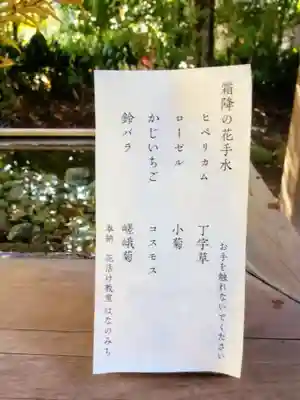 霜降の花手水
お手を触れないでください
ヒペリカム
丁字草
ローゼル
小菊
かじいちご
コスモス
鈴バラ
嵯峨菊
奉納 花活け教室 はなのみち